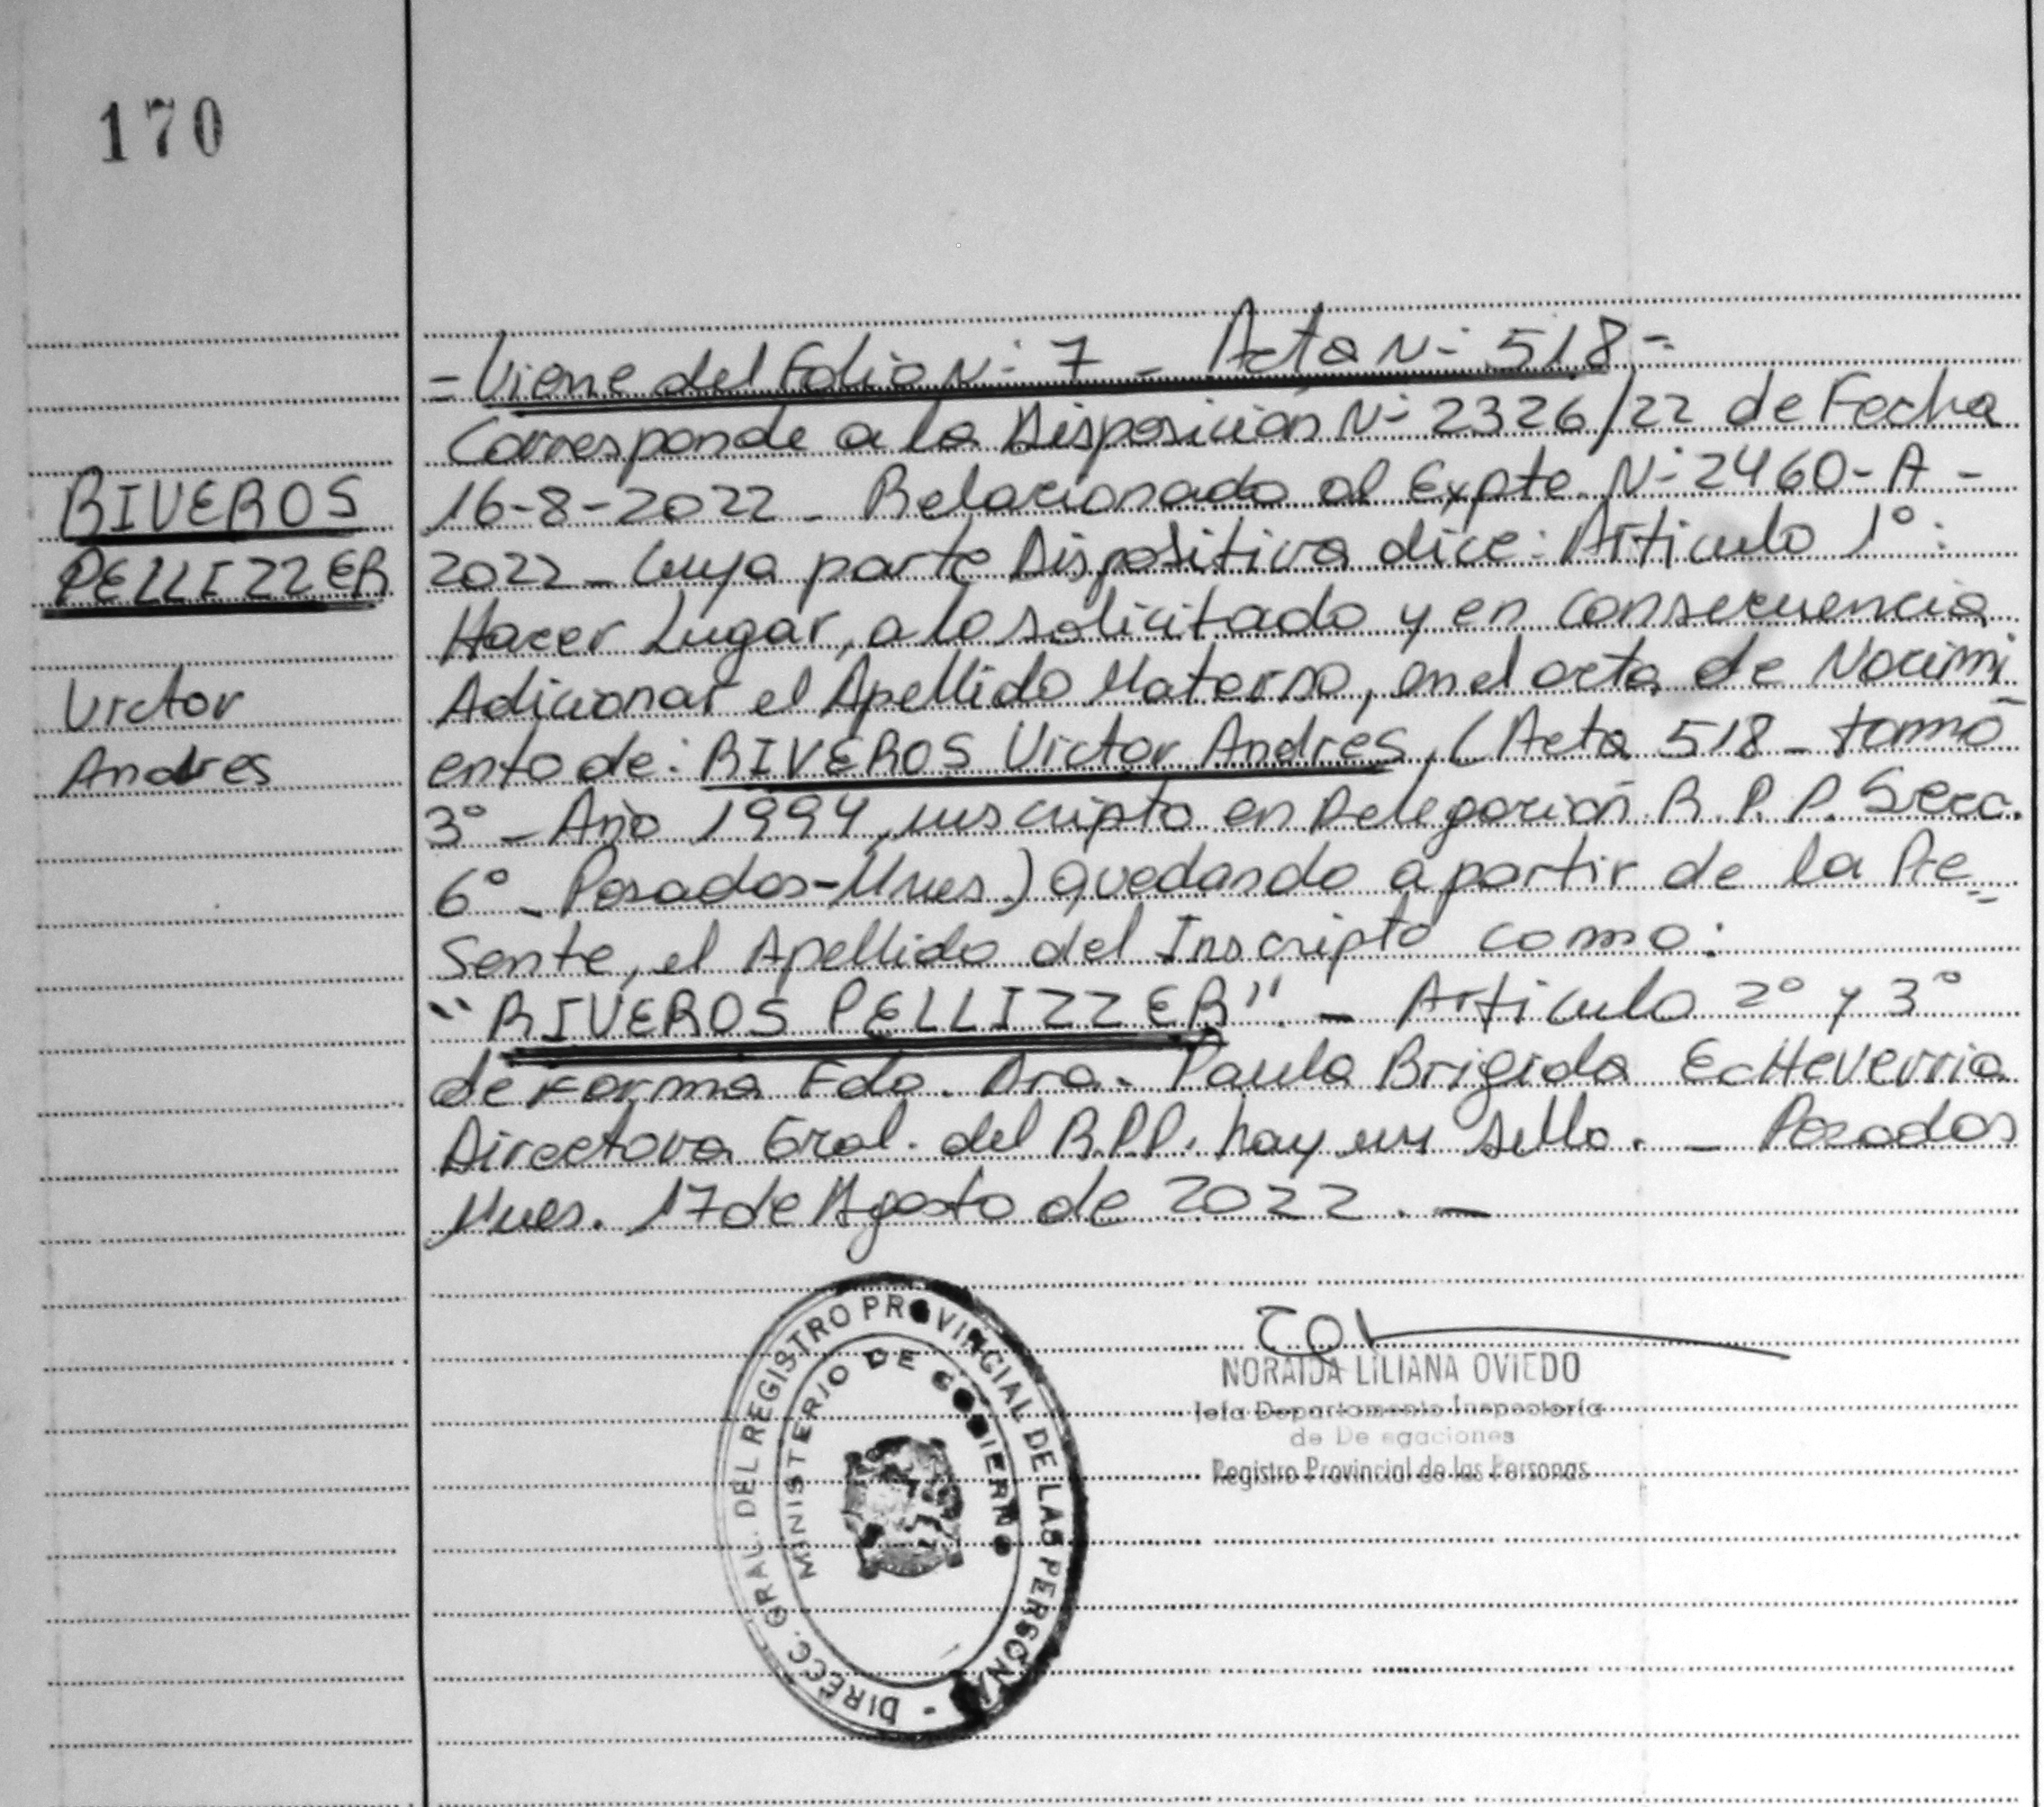 170
RIVEROS
PELLIZZER
Victor
Andres
= Viene del Folio N- 7 - Acta N- 518 =
Corresponde a la Disposición N- 2326/22 de Fecha
16-8-2022 - Relacionado al Expte. N- 2460-A-
2022 - Cuya parte Dispositiva dice: Articulo 1°:
Hacer Lugar, a lo solicitado y en consecuencia
Adicionar el Apellido Materno, en el acta de Nacimi
ento de: RIVEROS Victor Andres, (Acta 518 - tomo
3° - Año 1994, inscripto en Delegación R.P.P. Secc.
6° - Posadas-Mnes.) quedando a partir de la Pre=
sente, el Apellido del Inscripto como:
"RIVEROS PELLIZZER". - Articulo 2° y 3°
de Forma Fdo. Dra. Paula Brigida EcHeverria
Directora Gral. del R.P.P. hay un sello. - Posadas
Mnes. 17 de Agosto de 2022. -
DIRECC. GRAL. DEL REGISTRO PROVINCIAL DE LAS PERSONAS -
MINISTERIO DE GOBIERNO
NORAIDA LILIANA OVIEDO
Jefa Departamento Inspectoría
de Delegaciones
Registro Provincial de las Personas